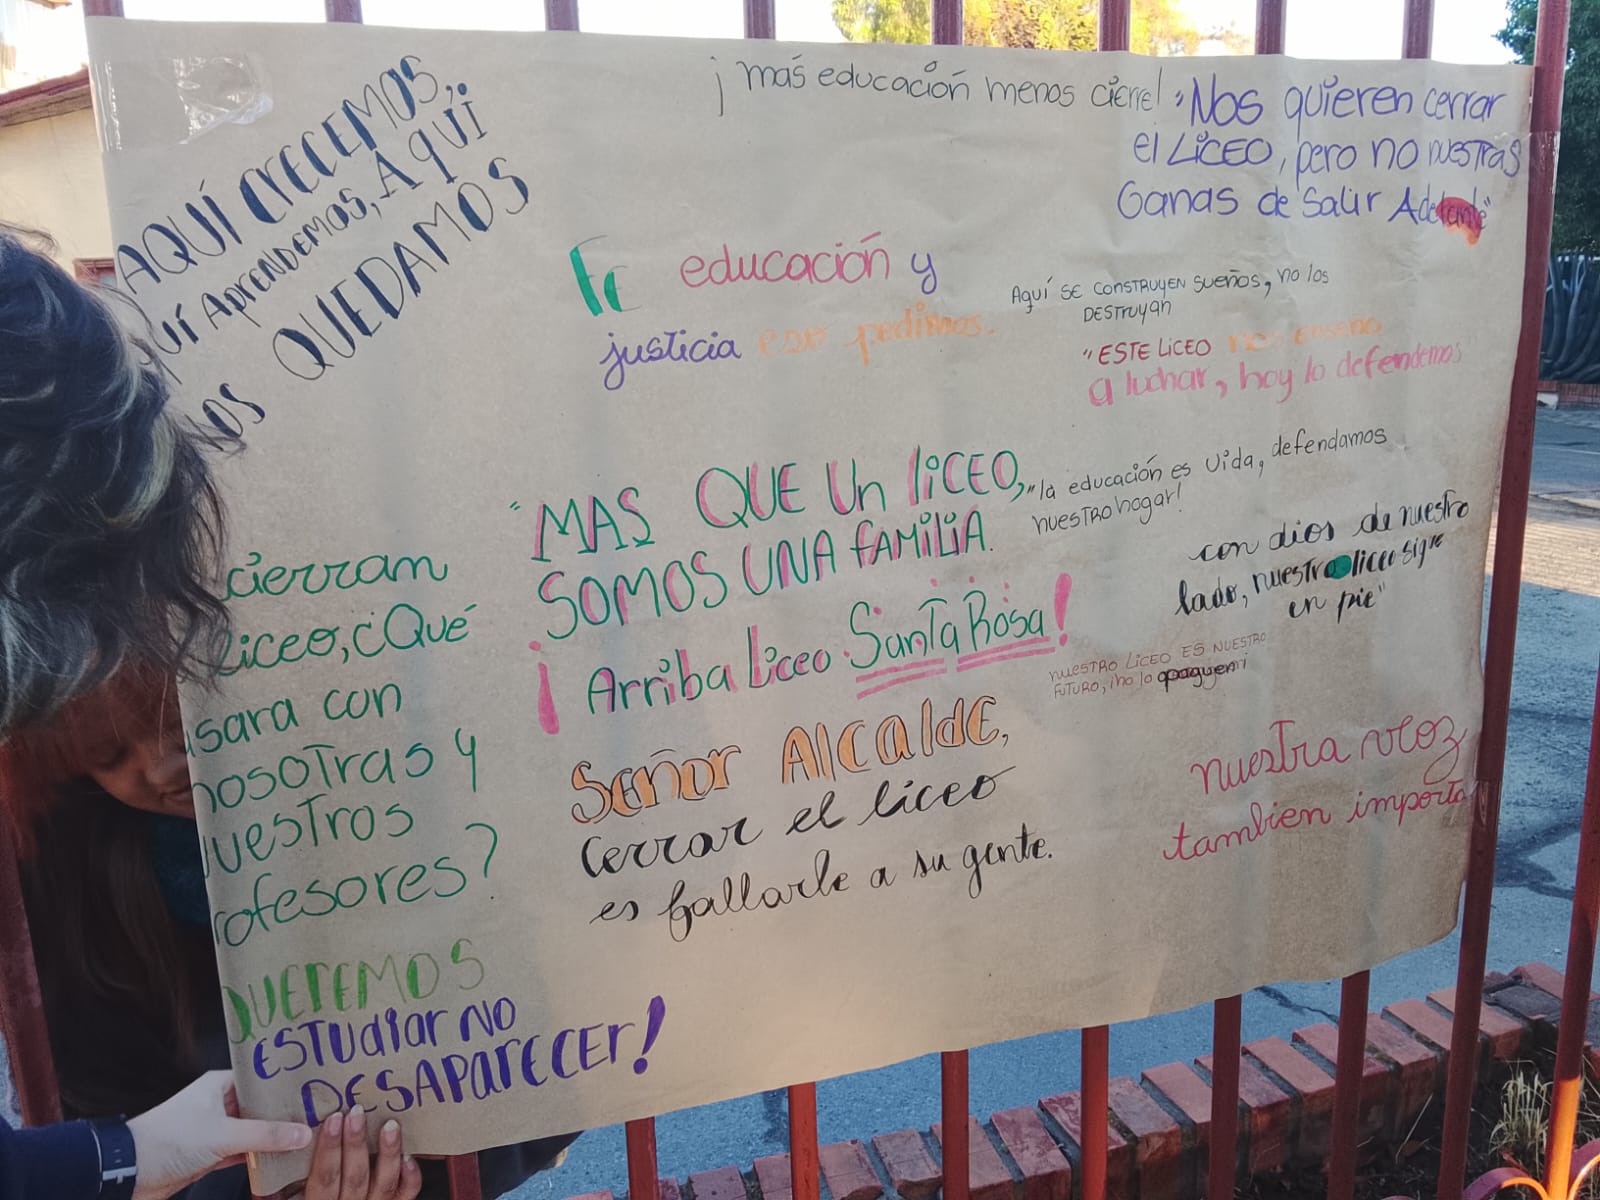 AQUÍ CRECEMOS,
AprENDEMOS, AQUÍ
QUEDAMOS
¡más educación menos cierre!
"Nos quieren cerrar
el LiCEO, pero no nuestras
Ganas de Salir Adelante"
educación y
justicia es pedimos.
Aquí se construyen sueños, no los
destruyan
"ESTE LiCEO nos enseño
a luchar, hoy lo defendemos"
"MAS QUE Un liCEO,
SOMOS UNA FAMiLiA.
¡Arriba Liceo Santa Rosa!
"la educación es vida, defendamos
nuestro hogar!
con dios de nuestro
lado, nuestro liceo sigue
en pie"
nuestro liceo es nuestro
futuro, ¡no lo apaguen!
cierran
liceo, ¿Qué
sara con
nosotras y
nuestros
ofesores?
Señor Alcalde,
cerrar el liceo
es fallarle a su gente.
nuestra voz
tambien importa
QUEREMOS
ESTUdiar NO
DESAPArECEr!